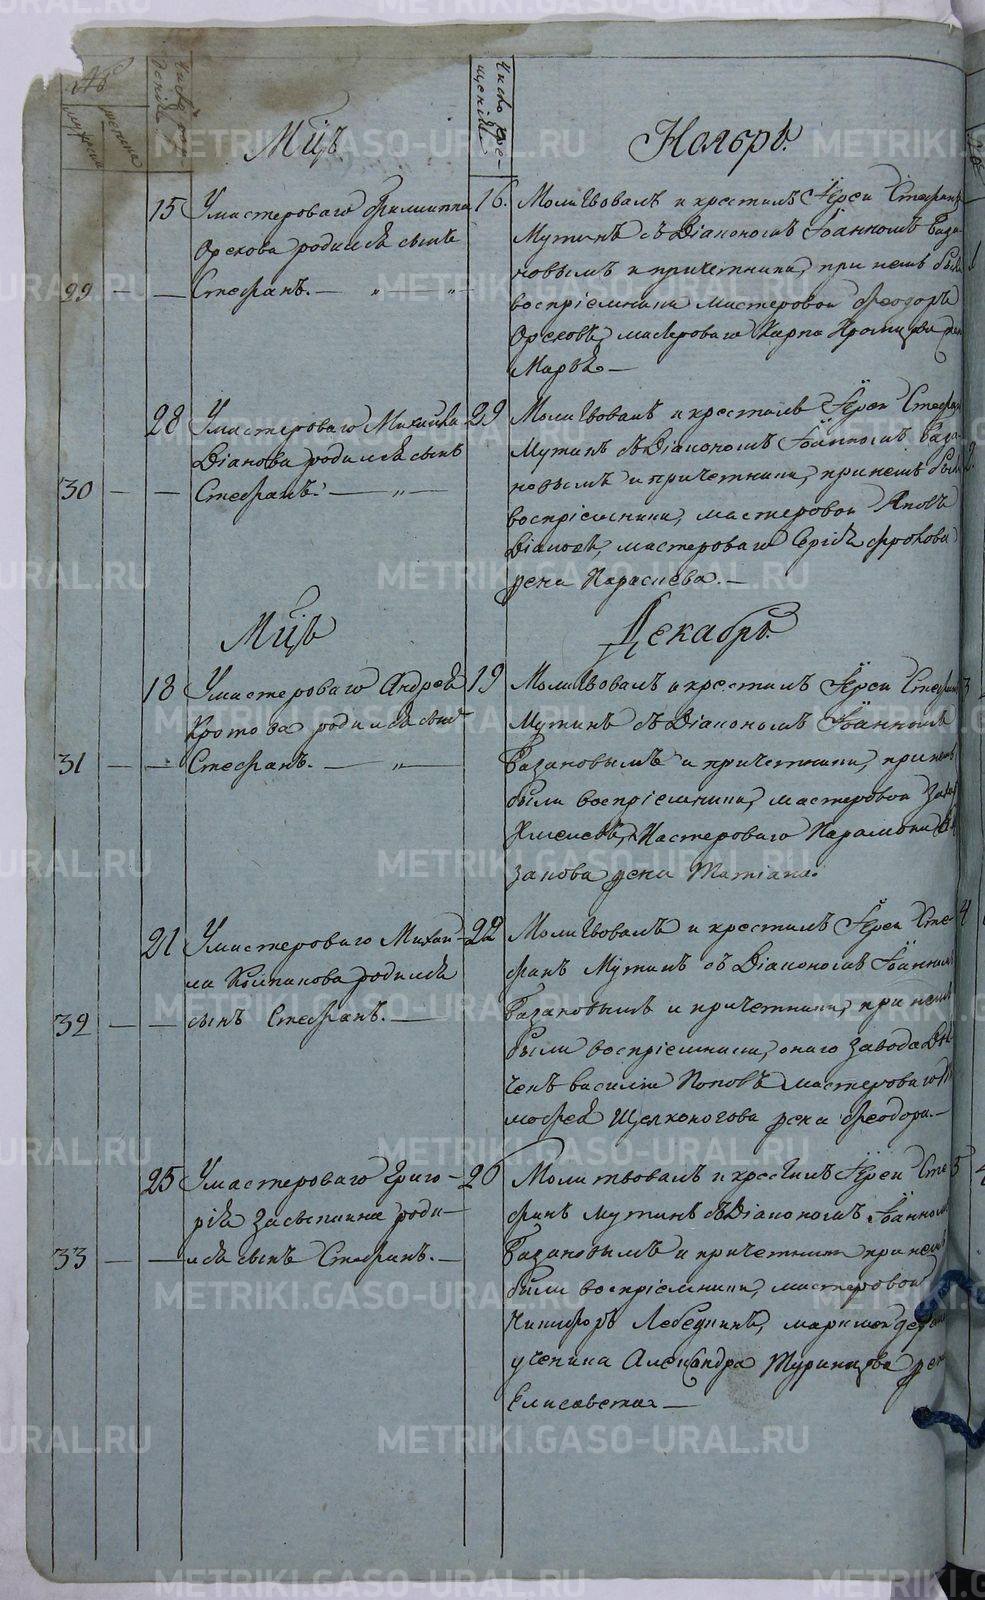 METRIKI.GASO-URAL.RU
№
мужска
женска
Число рож-
денiя
Число кре-
щенiя
Мц҃ъ
Ноябрь.
29
15
У мастероваго Филиппа
Орехова родился сынъ
Стефанъ. —
16.
Молитвовалъ и крестилъ Iерей Стефанъ
Мутинъ съ Дiакономъ Iоанномъ База-
новымъ и причетники, при немъ были
воспрiемники мастеровой Феодоръ
Ореховъ, мастероваго Карпа
Марья —
30
28
У мастероваго Михайла
Дiанова родился сынъ
Стефанъ. —
29
Молитвовалъ и крестилъ Iерей Стефанъ
Мутинъ съ Дiакономъ Iоанномъ База-
новымъ и причетники, при немъ были
воспрiемники, мастеровой Яковъ
Дiановъ, мастероваго Сергiя Фролова
жена Параскева. —
Мц҃ъ
Декабрь.
31
18
У мастероваго Андрея
Кротова родился сынъ
Стефанъ. —
19
Молитвовалъ и крестилъ Iерей Стефанъ
Мутинъ съ Дiакономъ Iоанномъ
Базановымъ и причетники, при немъ
были воспрiемники, мастеровой
мастероваго Парамона
жена Татiана.
32
21
У мастероваго Михаи-
ла Колпакова родился
сынъ Стефанъ. —
22
Молитвовалъ и крестилъ Iерей Сте-
фанъ Мутинъ съ Дiакономъ Iоанномъ
Базановымъ и причетники, при немъ
были воспрiемники, онаго завода
Василiй Поповъ мастероваго Ти-
мофея Щелконогова жена Феодора. —
33
25
У мастероваго Григо-
рiя Засыпкина роди-
лся сынъ Стефанъ. —
26
Молитвовалъ и крестилъ Iерей Сте-
фанъ Мутинъ съ Дiакономъ Iоанномъ
Базановымъ и причетники при немъ
были воспрiемники, мастеровой
Никифоръ Лебедкинъ,
ученика Александра Туринцова жена
Елисавета —